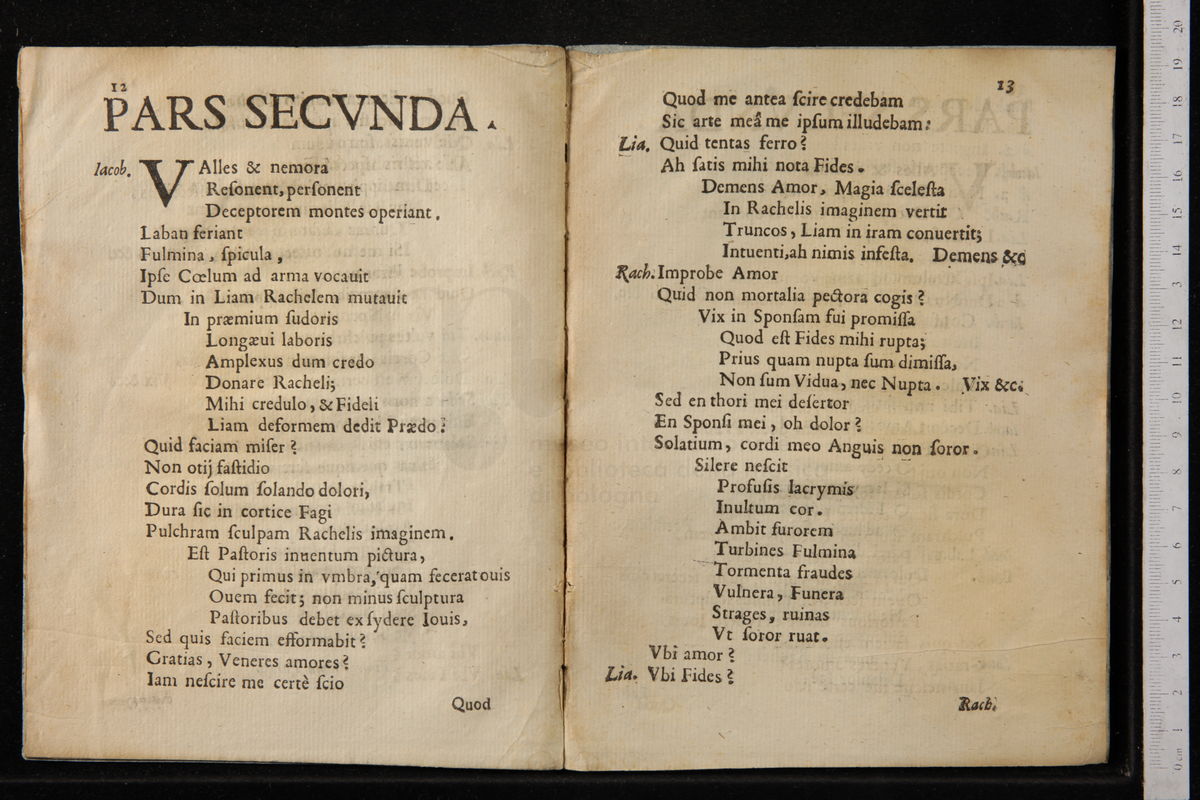 12
PARS SECVNDA.
Iacob. VAlles & nemora
Reſonent, perſonent
Deceptorem montes operiant.
Laban feriant
Fulmina, ſpicula,
Ipſe Cœlum ad arma vocauit
Dum in Liam Rachelem mutauit
In præmium ſudoris
Longæui laboris
Amplexus dum credo
Donare Racheli;
Mihi credulo, & Fideli
Liam deformem dedit Prædo.
Quid faciam miſer?
Non otij faſtidio
Cordis ſolum ſolando dolori,
Dura ſic in cortice Fagi
Pulchram ſculpam Rachelis imaginem.
Eſt Paſtoris inuentum pictura,
Qui primus in vmbra, quam fecerat ouis
Ouem fecit; non minus ſculptura
Paſtoribus debet ex ſydere Iouis,
Sed quis faciem efformabit?
Gratias, Veneres amores?
Iam neſcire me certè ſcio
Quod
13
Quod me antea ſcire credebam
Sic arte meâ me ipſum illudebam:
Lia. Quid tentas ferro?
Ah ſatis mihi nota Fides.
Demens Amor, Magia ſceleſta
In Rachelis imaginem vertit
Truncos, Liam in iram conuertit;
Intuenti, ah nimis infeſta. Demens &c
Rach. Improbe Amor
Quid non mortalia pectora cogis?
Vix in Sponſam fui promiſſa
Quod eſt Fides mihi rupta;
Prius quam nupta ſum dimiſſa,
Non ſum Vidua, nec Nupta. Vix &c.
Sed en thori mei deſertor
En Sponſi mei, oh dolor?
Solatium, cordi meo Anguis non ſoror.
Silere neſcit
Profuſis lacrymis
Inultum cor.
Ambit furorem
Turbines Fulmina
Tormenta fraudes
Vulnera, Funera
Strages, ruinas
Vt ſoror ruat.
Vbi amor?
Lia. Vbi Fides?
Rach.